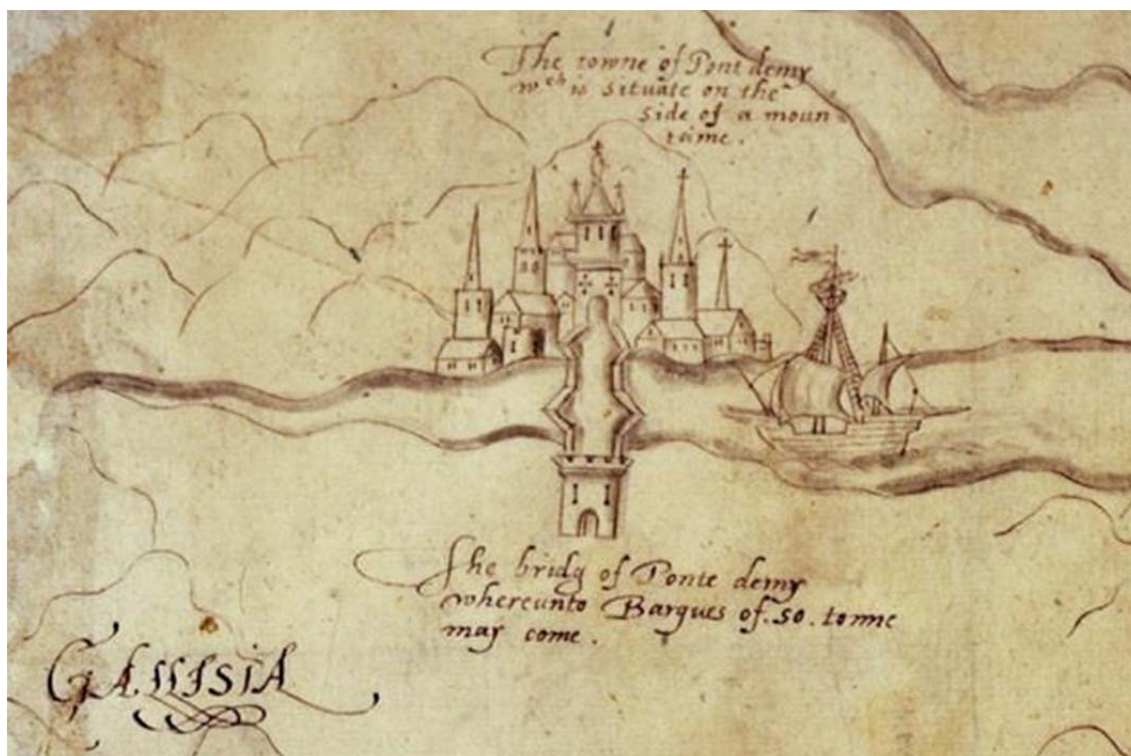 The towne of Pont demy
wch is situate on the
side of a moun
taine.
The bridg of Ponte demy
whereunto Barques of .50. tonne
may come.
GALLISIA